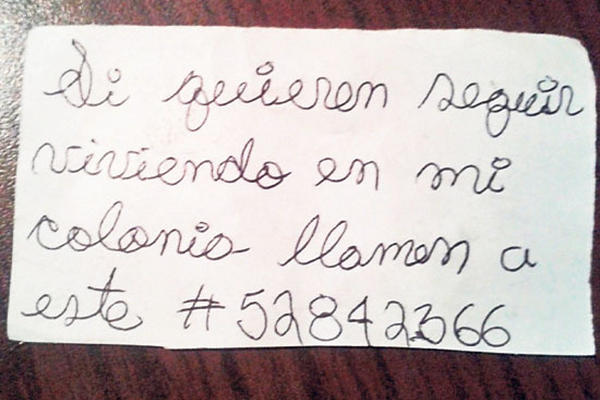 Si quieren seguir
viviendo en mi
colonia llamen a
este #52842366